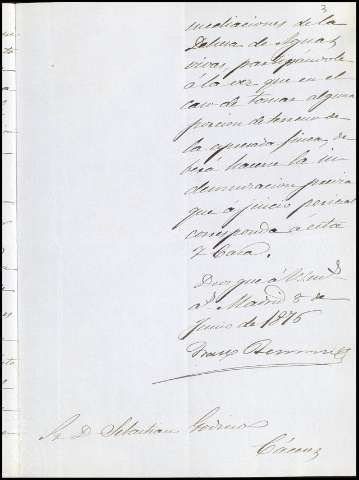 3
mediaciones de la
Dehesa de Aguas
vivas, participándole
á la vez que en el
caso de tomar alguna
porcion de terreno de
la espresada finca, de
berá hacerse la in
demnizacion previa
que á juicio pericial
corresponda á esta
Casa.
Dios gue á V. muchs
as Madrid 8 de
Junio de 1876
Sr D. Sebastian Godino
Cáceres